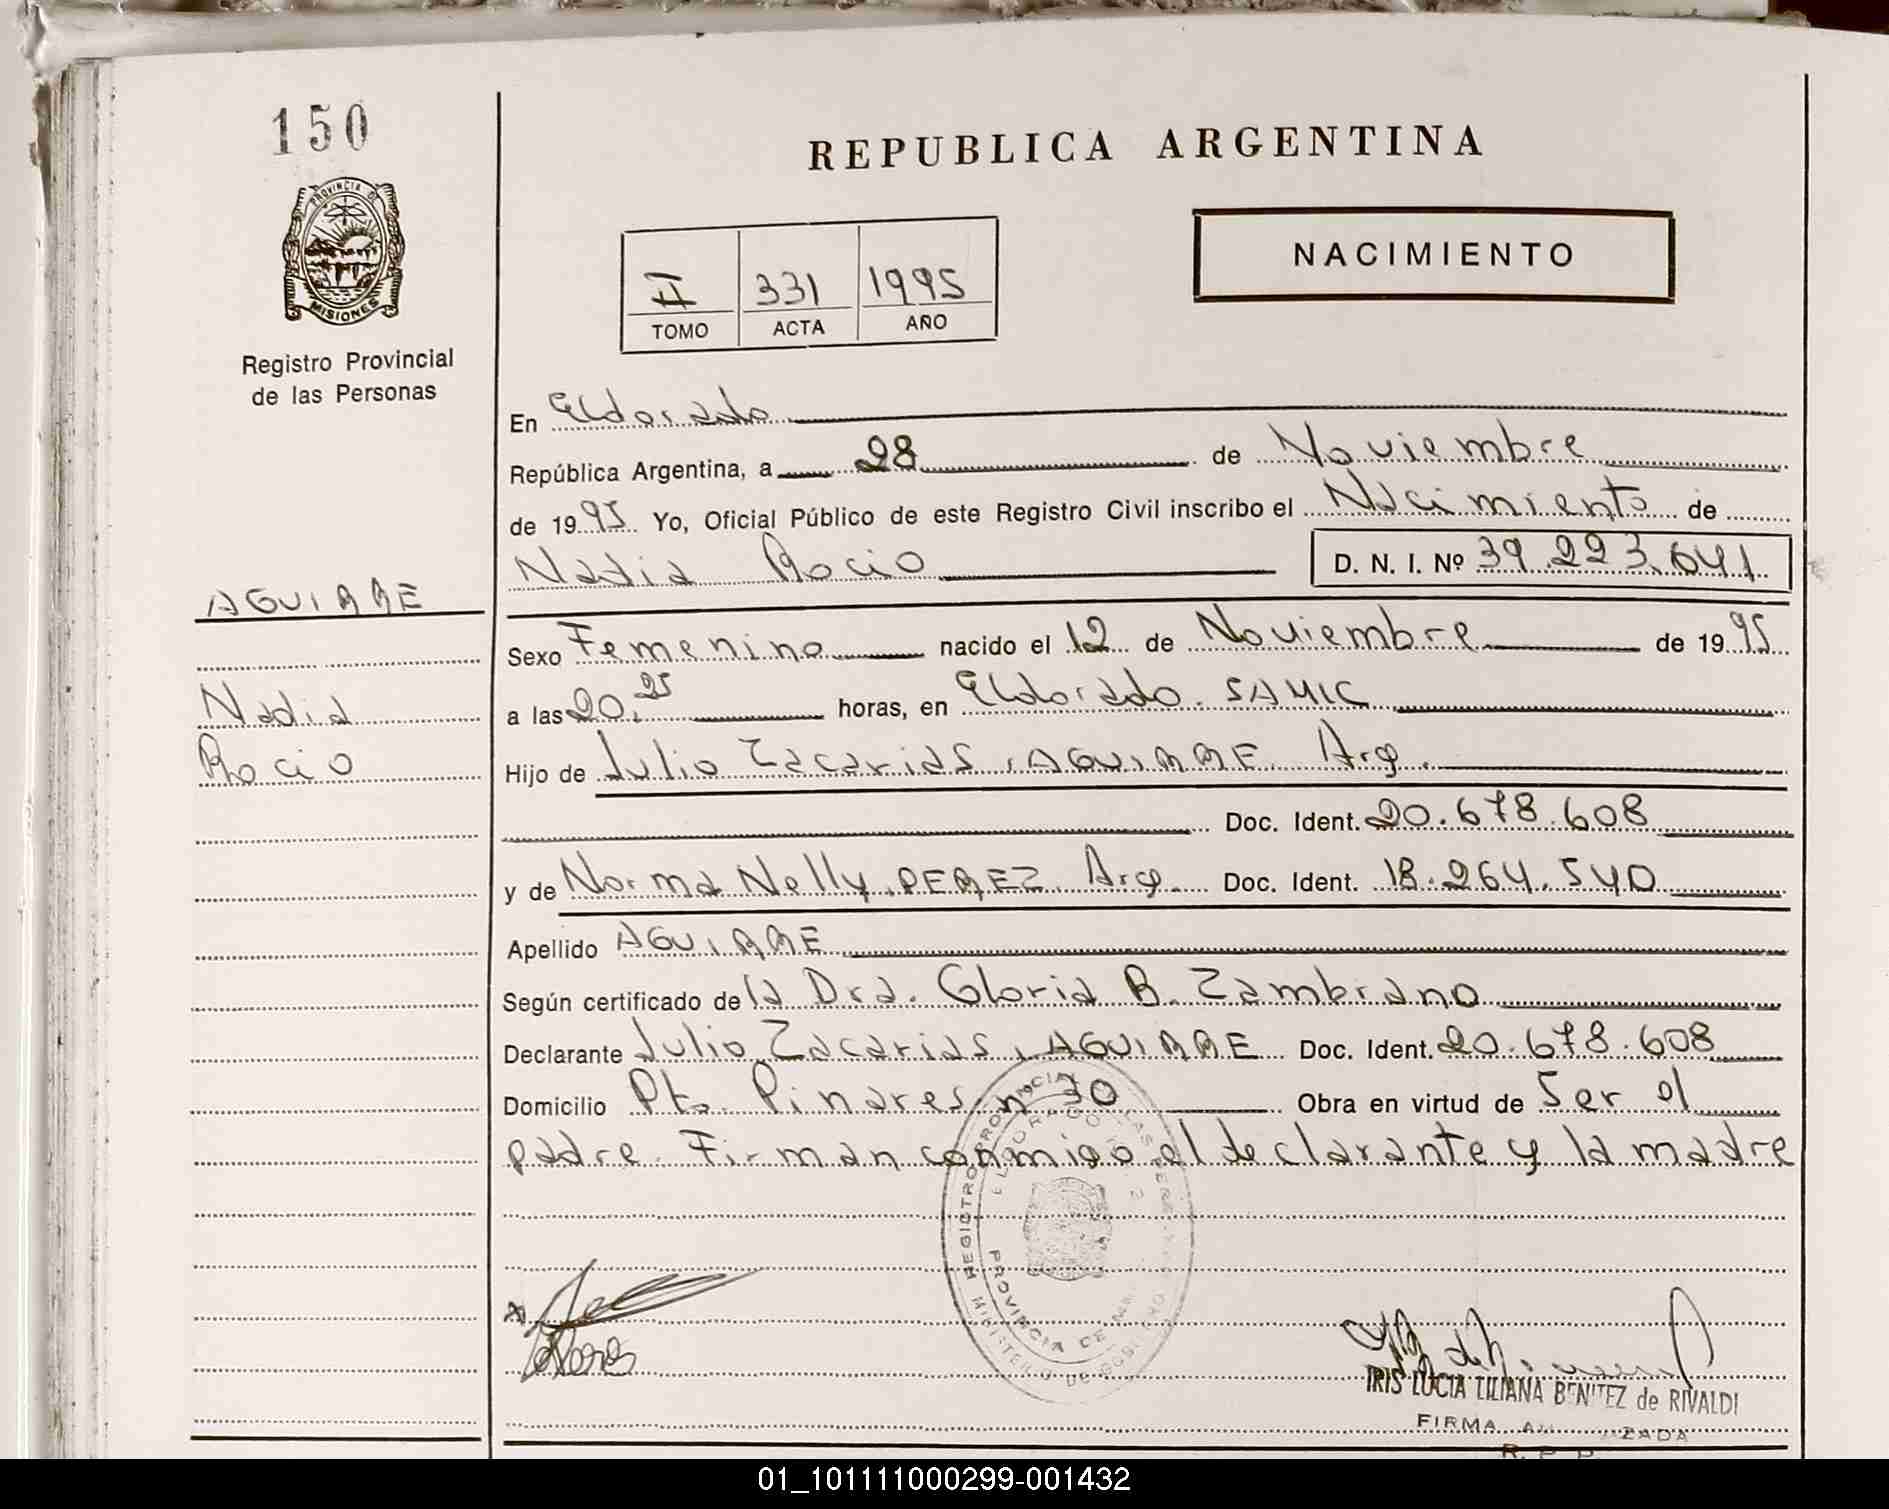 150
PROVINCIA DE
MISIONES
Registro Provincial
de las Personas
AGUIRRE
Nadia
Rocio
REPUBLICA ARGENTINA
II 331 1995
TOMO ACTA AÑO
NACIMIENTO
En Eldorado
República Argentina, a 28 de Noviembre
de 1995 Yo, Oficial Público de este Registro Civil inscribo el Nacimiento de
Nadia Rocio D. N. I. Nº 39.223.641
Sexo Femenino nacido el 12 de Noviembre de 1995
a las 20.25 horas, en Eldorado. SAMIC
Hijo de Julio Zacarias, AGUIRRE Arg.
Doc. Ident. 20.678.608
y de Norma Nelly PEREZ Arg. Doc. Ident. 18.264.540
Apellido AGUIRRE
Según certificado de la Dra. Gloria B. Zambrano
Declarante Julio Zacarias, AGUIRRE Doc. Ident. 20.678.608
Domicilio Pto. Pinares nº 30 Obra en virtud de Ser el
padre. Firman conmigo el declarante y la madre
REGISTRO PROVINCIAL DE LAS PERSONAS
ELDORADO
PROVINCIA DE
MINISTERIO DE GOBIERNO
IRIS LUCIA LILIANA BENITEZ de RIVALDI
FIRMA AUTORIZADA
R. P. P.
01_101111000299-001432